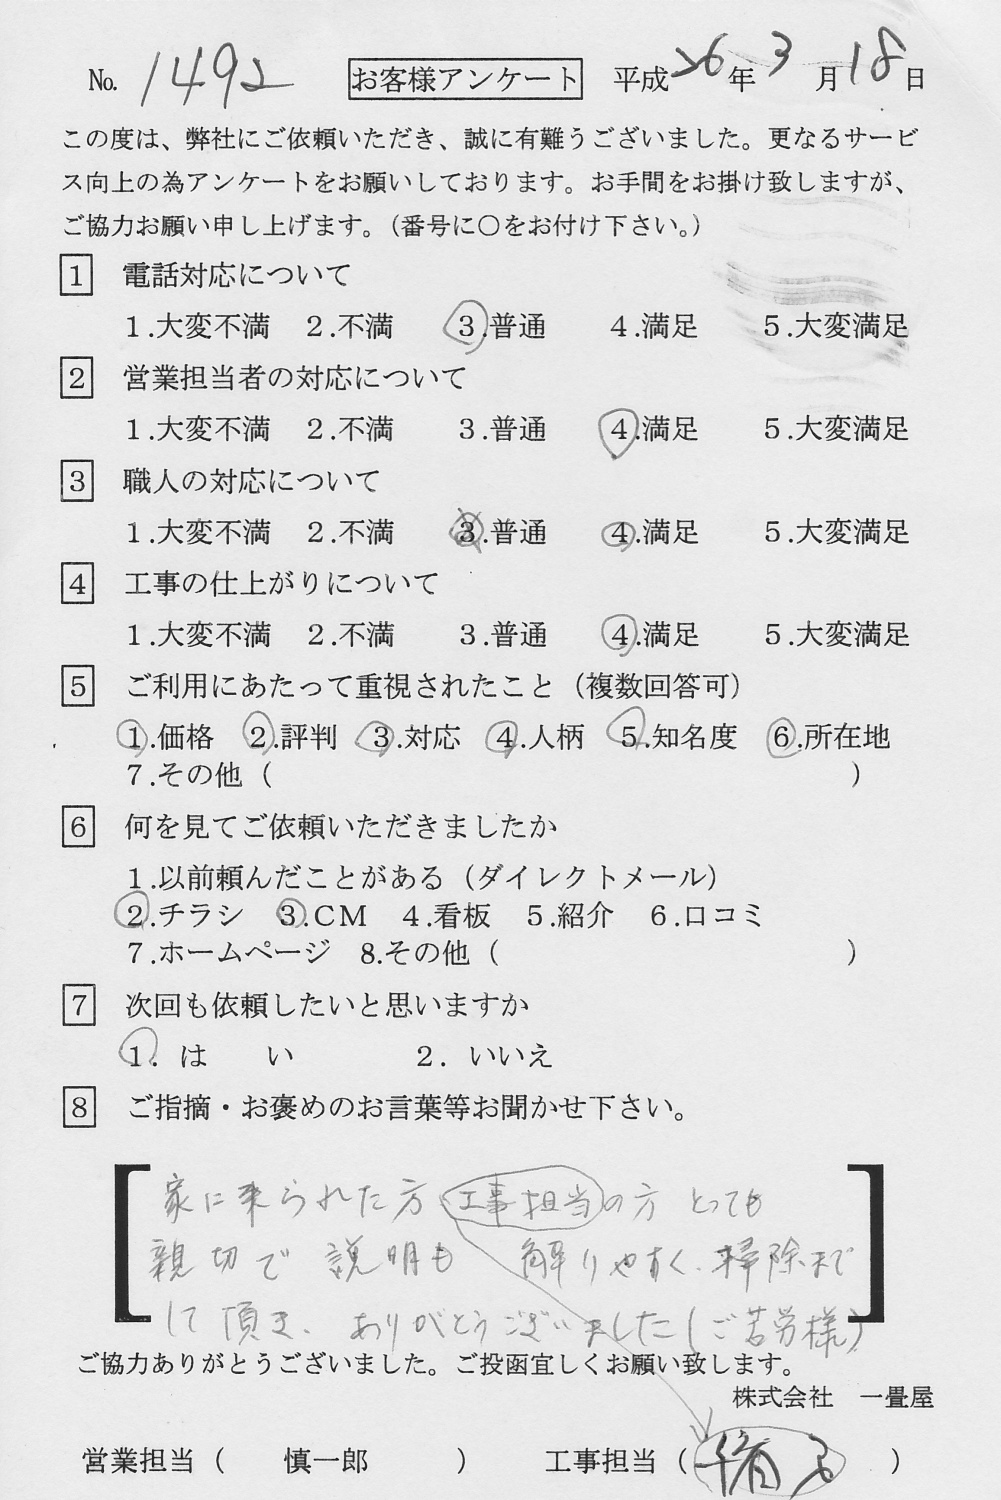 No. 1492 お客様アンケート 平成26年3月18日
この度は、弊社にご依頼いただき、誠に有難うございました。更なるサービ
ス向上の為アンケートをお願いしております。お手間をお掛け致しますが、
ご協力お願い申し上げます。（番号に〇をお付け下さい。）
1 電話対応について
1.大変不満 2.不満 3.普通 4.満足 5.大変満足
2 営業担当者の対応について
1.大変不満 2.不満 3.普通 4.満足 5.大変満足
3 職人の対応について
1.大変不満 2.不満 3.普通 4.満足 5.大変満足
4 工事の仕上がりについて
1.大変不満 2.不満 3.普通 4.満足 5.大変満足
5 ご利用にあたって重視されたこと（複数回答可）
1.価格 2.評判 3.対応 4.人柄 5.知名度 6.所在地
7.その他（ ）
6 何を見てご依頼いただきましたか
1.以前頼んだことがある（ダイレクトメール）
2.チラシ 3.CM 4.看板 5.紹介 6.口コミ
7.ホームページ 8.その他（ ）
7 次回も依頼したいと思いますか
1. はい 2. いいえ
8 ご指摘・お褒めのお言葉等お聞かせ下さい。
家に来られた方 工事担当の方 とっても
親切で 説明も 解りやすく、掃除まで
して頂き、ありがとうございました（ご苦労様）
ご協力ありがとうございました。ご投函宜しくお願い致します。
株式会社 一畳屋
営業担当（ 慎一郎 ） 工事担当（ ）